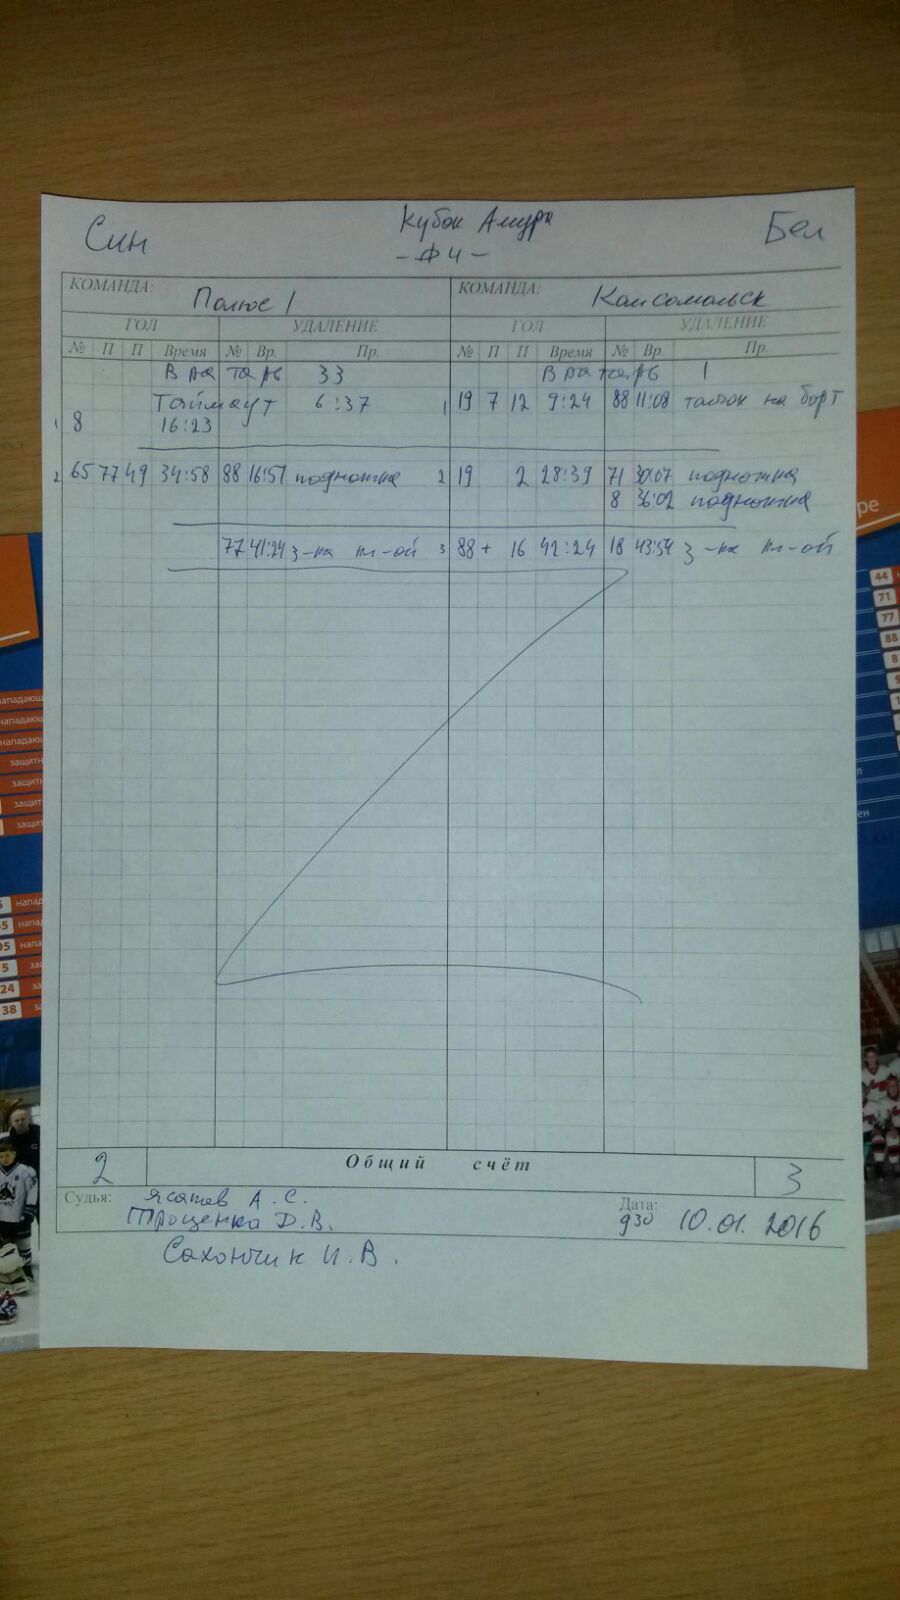 Син Кубок Амура Бел
КОМАНДА: Полюс 1 КОМАНДА: Комсомольск
ГОЛ УДАЛЕНИЕ ГОЛ УДАЛЕНИЕ
№ П П Время № Вр. Пр. № П П Время № Вр. Пр.
Вратарь 33 Вратарь 1
Таймаут 6:37 1 19 7 12 9:24 88 11:08 толчок на борт
1 8 16:23
2 65 77 49 34:58 88 16:51 подножка 2 19 2 28:39 71 30:07 подножка
8 36:02 подножка
77 41:24 з-ка кл-ой 3 88 + 16 42:24 18 43:54 з-ка кл-ой
2 Общий счёт 3
Судья: А. С. Дата:
Трощенка Д.В. 930 10.01.2016
Сахончик И.В.
44
71
77
88
8
ре
нападающ
нападающ
нападаю
защитн
защитн
защит
защит
24
38